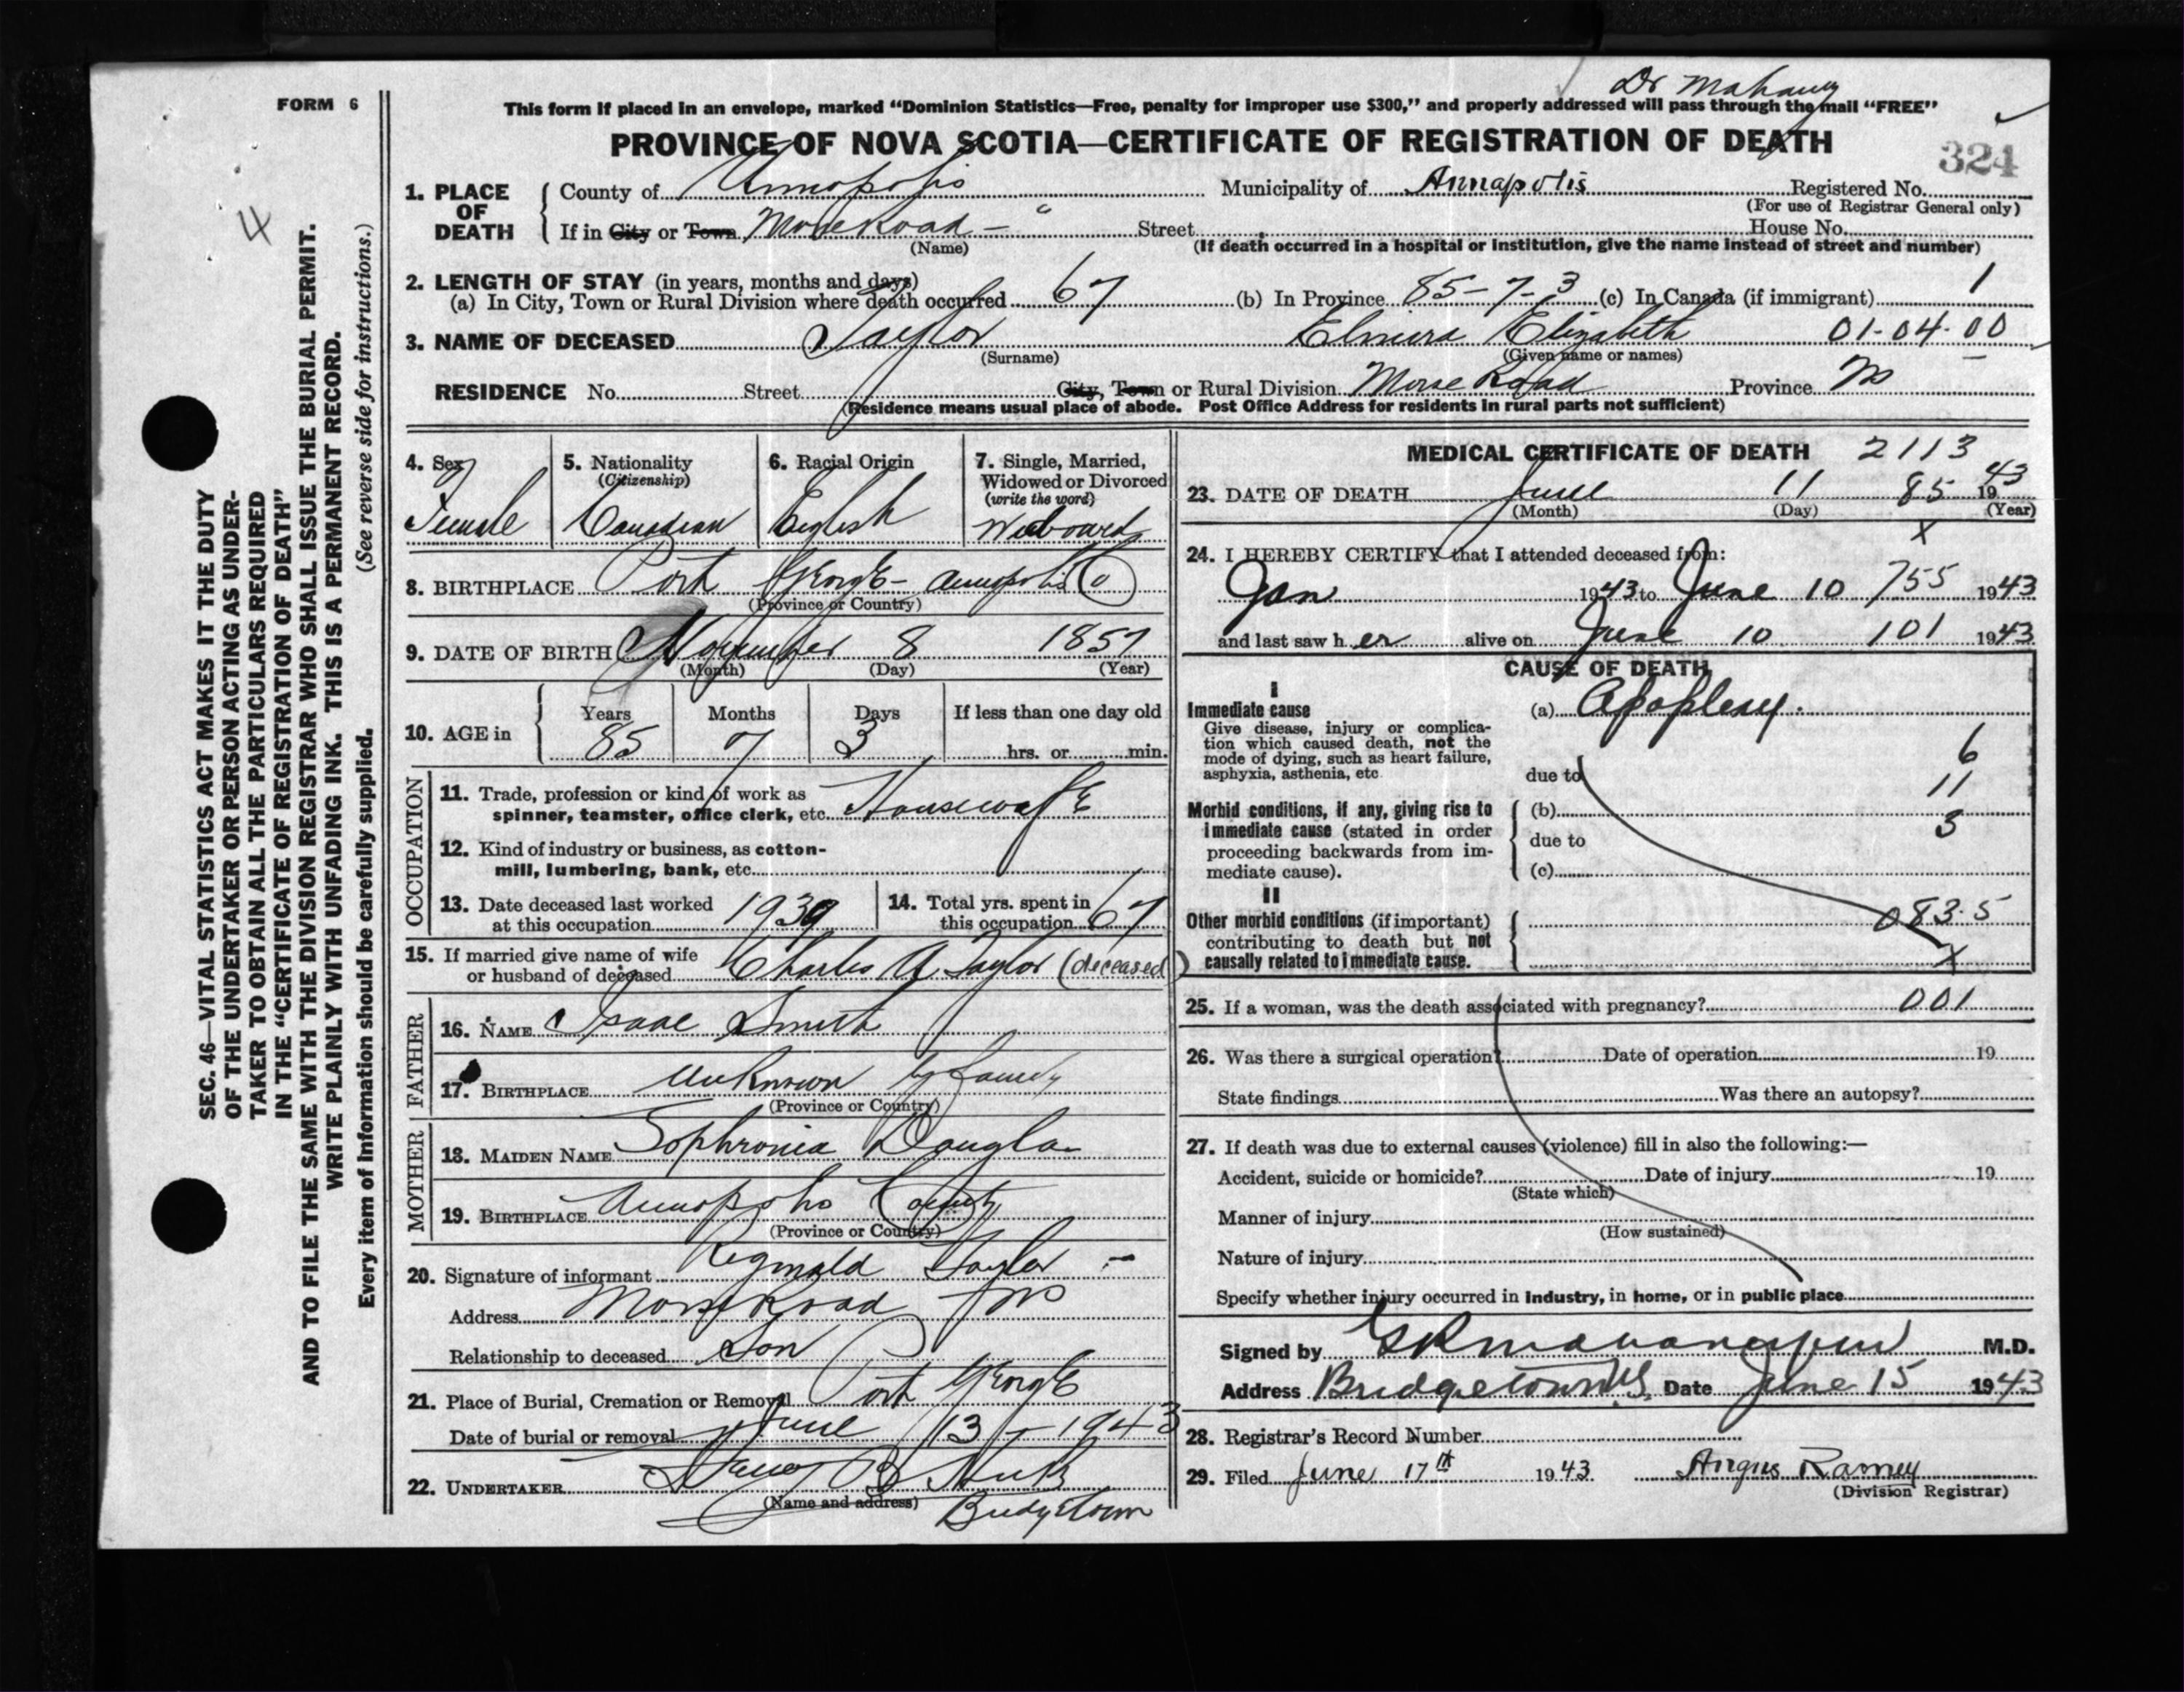 Dr Mahaney
FORM 6
This form if placed in an envelope, marked “Dominion Statistics—Free, penalty for improper use $300,” and properly addressed will pass through the mail “FREE”
PROVINCE OF NOVA SCOTIA—CERTIFICATE OF REGISTRATION OF DEATH
324
1. PLACE OF DEATH County of Annapolis Municipality of Annapolis Registered No.
(For use of Registrar General only)
If in City or Town Morse Road — " Street House No.
(Name) (If death occurred in a hospital or institution, give the name instead of street and number)
2. LENGTH OF STAY (in years, months and days)
(a) In City, Town or Rural Division where death occurred 67 (b) In Province 85-7-3 (c) In Canada (if immigrant) 1
3. NAME OF DECEASED Taylor Elmira Elizabeth 01-04-00
(Surname) (Given name or names)
RESIDENCE No. Street City, Town or Rural Division Morse Road Province NS
(Residence means usual place of abode. Post Office Address for residents in rural parts not sufficient)
4. Sex Female
5. Nationality (Citizenship) Canadian
6. Racial Origin English
7. Single, Married, Widowed or Divorced (write the word)
8. BIRTHPLACE Port George - Annapolis Co
(Province or Country)
9. DATE OF BIRTH November 8 1857
(Month) (Day) (Year)
10. AGE in Years 85 Months 7 Days 3 If less than one day old hrs. or min.
OCCUPATION
11. Trade, profession or kind of work as
spinner, teamster, office clerk, etc. Housewife
12. Kind of industry or business, as cotton-
mill, lumbering, bank, etc.
13. Date deceased last worked at this occupation 1939
14. Total yrs. spent in this occupation 67
15. If married give name of wife
or husband of deceased Charles A Taylor (deceased)
FATHER
16. NAME Isaac Smith
17. BIRTHPLACE Unknown by family
(Province or Country)
MOTHER
18. MAIDEN NAME Sophronia Douglas
19. BIRTHPLACE Annapolis County
(Province or Country)
20. Signature of informant Reginald Taylor
Address Morse Road NS
Relationship to deceased Son
21. Place of Burial, Cremation or Removal Port George
Date of burial or removal June 13 - 1943
22. UNDERTAKER B
(Name and address) Bridgetown
MEDICAL CERTIFICATE OF DEATH 2113
23. DATE OF DEATH June 11 85 1943
(Month) (Day) (Year)
x
24. I HEREBY CERTIFY that I attended deceased from:
Jan 1943 to June 10 755 1943
and last saw her alive on June 10 101 1943
CAUSE OF DEATH
I
Immediate cause
Give disease, injury or complica-
tion which caused death, not the
mode of dying, such as heart failure,
asphyxia, asthenia, etc.
(a) Apoplexy.
6
due to
11
Morbid conditions, if any, giving rise to
immediate cause (stated in order
proceeding backwards from im-
mediate cause).
(b)
3
due to
(c)
II
Other morbid conditions (if important)
contributing to death but not
causally related to immediate cause.
083.5
x
25. If a woman, was the death associated with pregnancy? 001
26. Was there a surgical operation? Date of operation 19
State findings Was there an autopsy?
27. If death was due to external causes (violence) fill in also the following:—
Accident, suicide or homicide? Date of injury 19
(State which)
Manner of injury
(How sustained)
Nature of injury
Specify whether injury occurred in industry, in home, or in public place
Signed by M.D.
Address Bridgetown NS. Date June 15 1943
28. Registrar's Record Number
29. Filed June 17th 1943 Angus Ramey
(Division Registrar)
4
SEC. 46—VITAL STATISTICS ACT MAKES IT THE DUTY
OF THE UNDERTAKER OR PERSON ACTING AS UNDER-
TAKER TO OBTAIN ALL THE PARTICULARS REQUIRED
IN THE “CERTIFICATE OF REGISTRATION OF DEATH”
AND TO FILE THE SAME WITH THE DIVISION REGISTRAR WHO SHALL ISSUE THE BURIAL PERMIT.
WRITE PLAINLY WITH UNFADING INK. THIS IS A PERMANENT RECORD.
Every item of information should be carefully supplied. (See reverse side for instructions.)